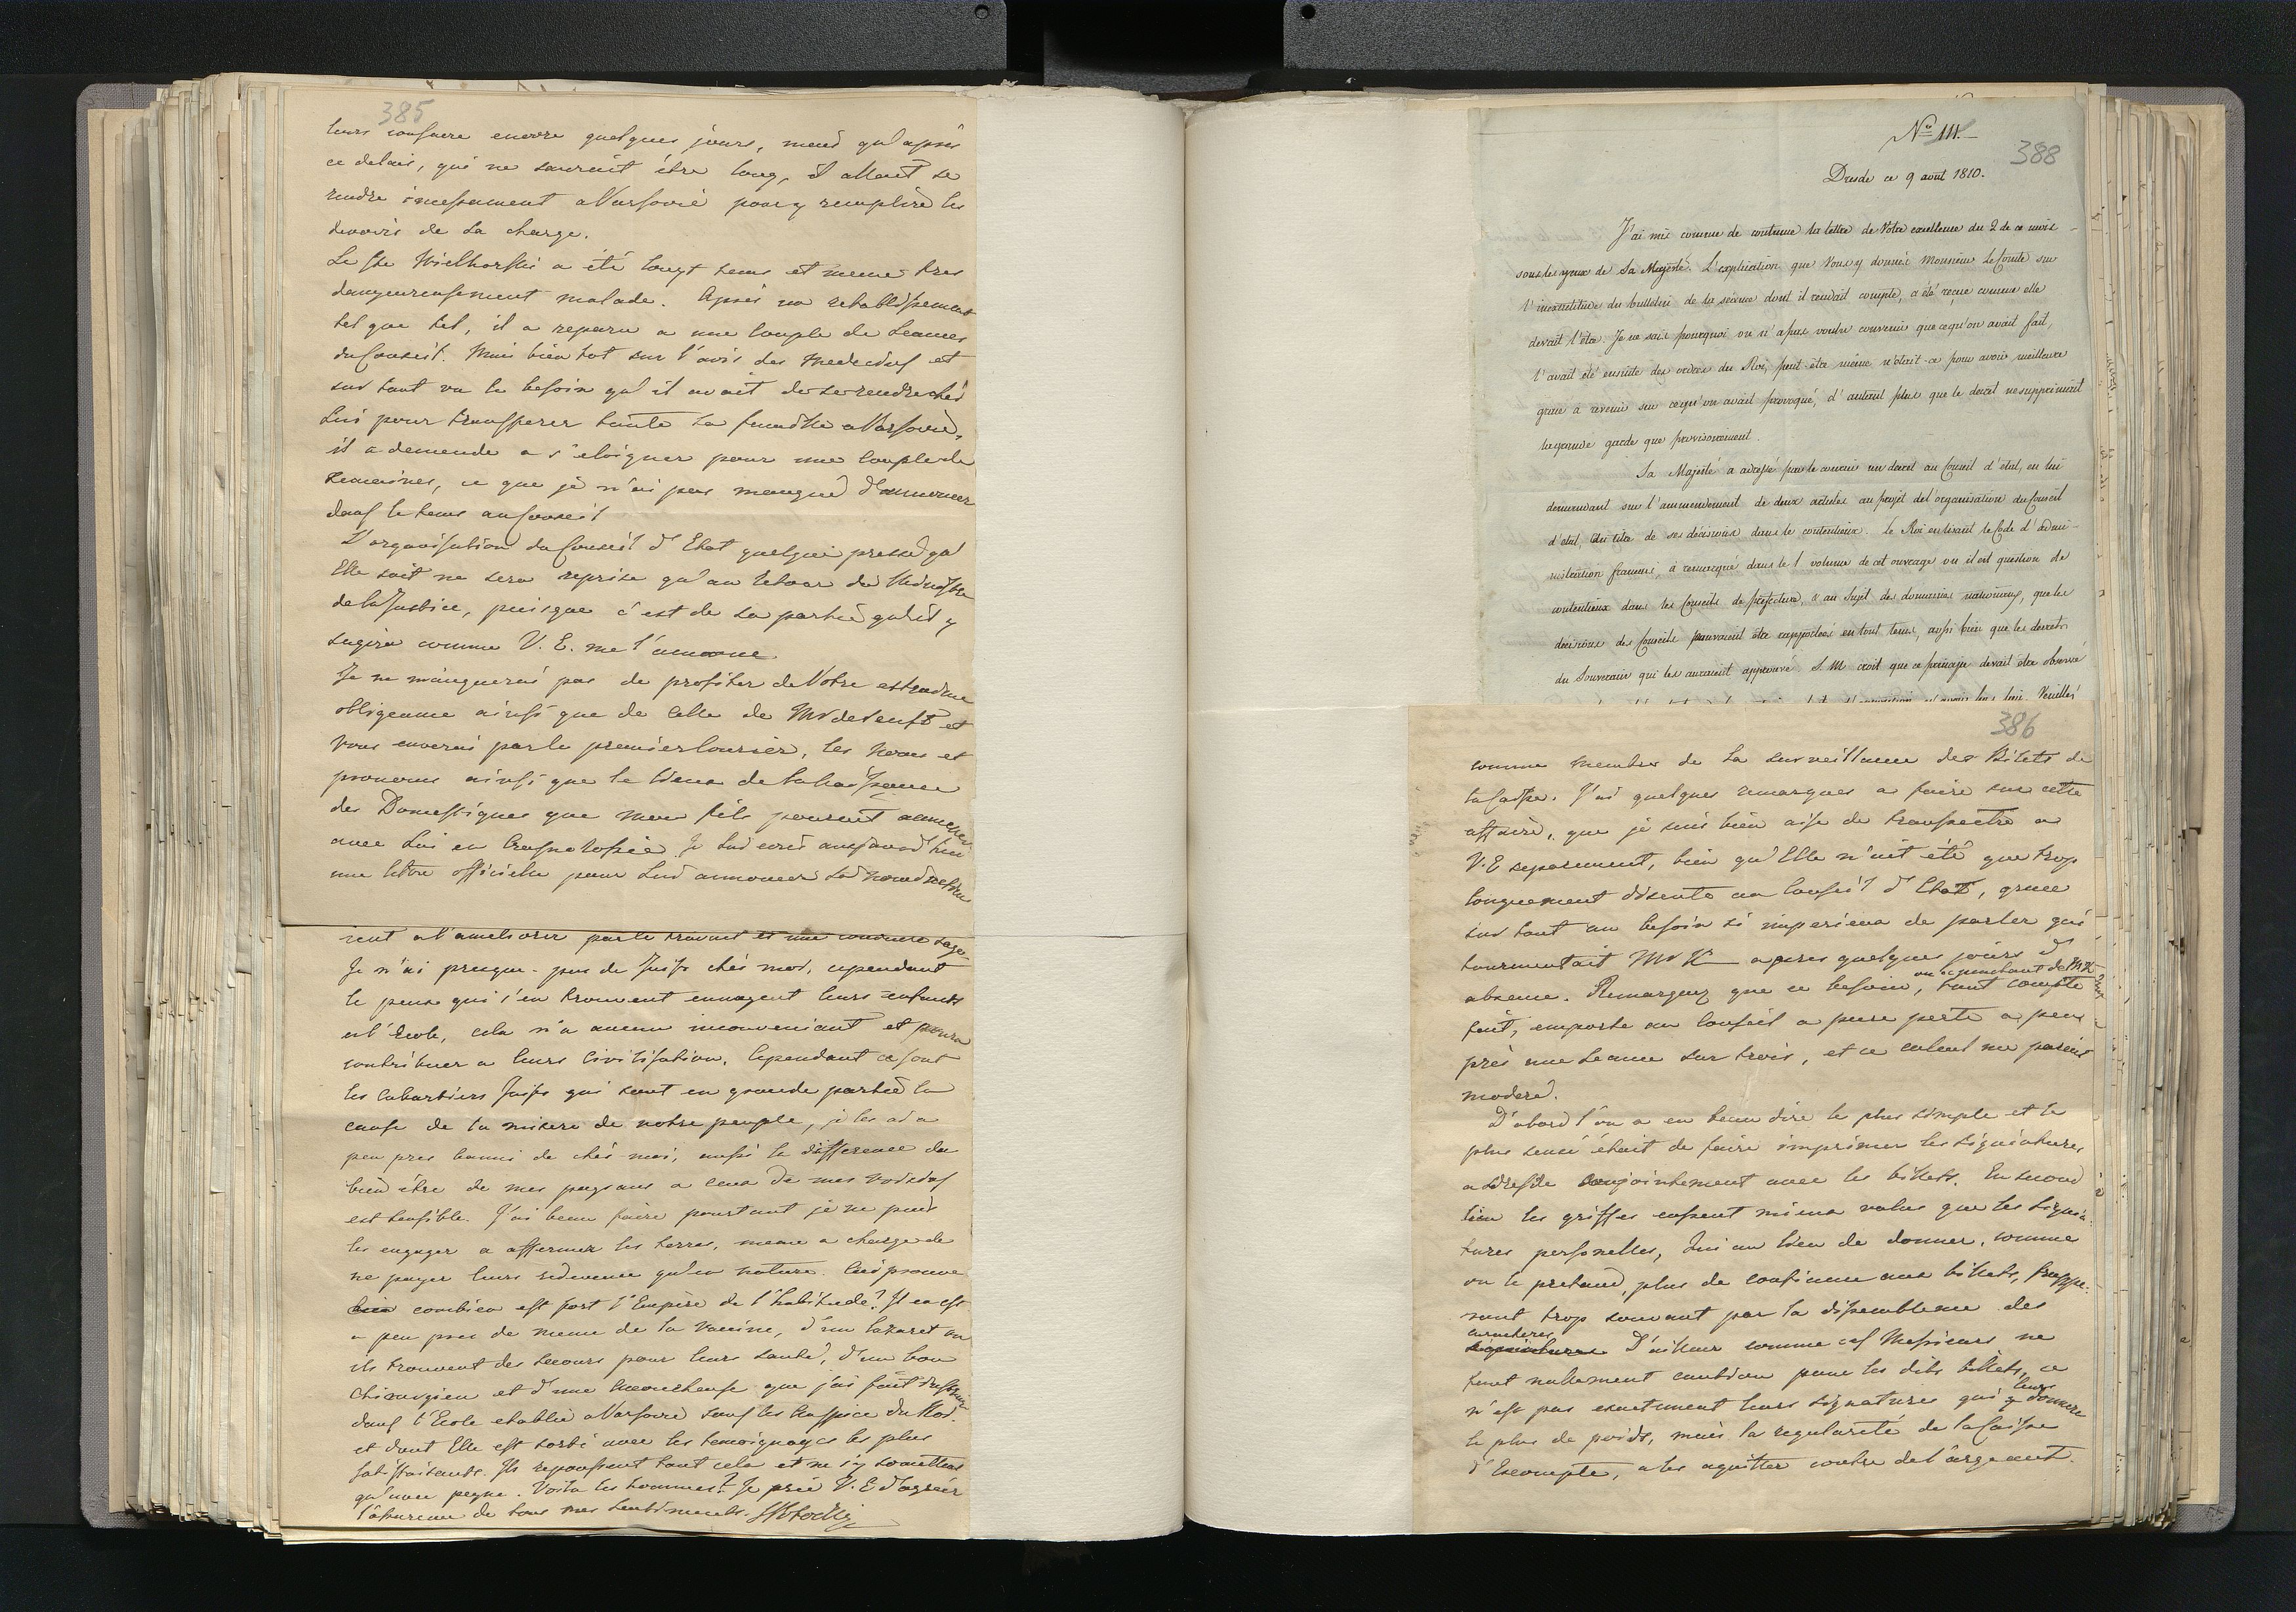 385
leurs confrere encore quelques jours, mais qu'apres
ce delais, qui ne sauroit être long, il allait se
rendre incessament a Varsovie pour y remplire les
devoirs de sa charge.
Le Cte Wielhorski a été longt tems et meme tres
dangeureusement malade. Après un retablissement
tel que tel, il a reparu a une couple de seances
du Conseil. Mais bientot sur l'avis des Medecins et
sur tout vu le besoin qu'il avait de se rendre chés
lui pour transferer toute sa famille a Varsovie,
il a demendé a s'eloigner pour une couple de
semaines, ce que je n'ai pas manqué d'annoncer
dans le tems au Conseil
L'organisation du Conseil d'Etat quelque pressé qu'
Elle soit ne sera reprise qu'au retour du Ministre
de la Justice, puisque c'est de sa partie qu'il y
s'agira comme V. E. me l'annonce
Je ne manquerai pas de profiter de Votre extreme
obligeance ainsi que de celle de Mr de Senft et
vous enverai par le premier Courier, les noms et
prenoms ainsi que le lieux de la naissance
des Domestiques que mon fils pourrait ammener
avec lui en
une lettre officielle pour lui annoncer sa
ient a l'ameliorer par le travail et une conduite sage
Je n'ai presque pas de Juifs chés moi, cependant
le peu qui s'en trouvent envoyent leurs enfants
a l'Ecole, cela n'a aucun inconveniant et pourra
contribuer a leurs Civilisation. Cependant ce sont
les Cabartiers Juifs qui sont en grande partie la
cause de la misere de notre peuple, je les ai a
peu pres banni de chés moi, aussi la difference du
bien être de mes paysans a ceux de mes voisins
est sensible. J'ai beau faire pourtant je ne puis
les engager a affermer les terres, meme a charge de
ne payer leurs redevence qu'en nature. Ceci prouve
combien est fort l'Empire de l'habitude? Il en est
a peu pres de meme de la Vaccine, d'un lazaret ou
ils trouvent des secours pour leurs santé, d'un bon
Chirurgien et d'une Accoucheuse que j'ai fait instruire
dans l'Ecole etablie a Varsovie sous les Auspice du Roi.
et dont Elle est sortie avec les temoignages les plus
satisfaisants. Ils repoussent tout cela et ne s'y soumettent
qu'avec peyne. Voila les hommes? Je prie V. E d'agreer
l'assurence de tous mes sentiments.
No III.
388
Dresde ce 9 août 1810.
J'ai mis comme de coutume la lettre de Votre excellence du 2 de ce mois
sous les yeux de Sa Majesté. L'explication que Vous y donnés Monsieur Le Comte sur
l'inexactitude du bulletin de la séance dont il rendait compte, a été reçue comme elle
devait l'être. Je ne sais pourquoi on n'a pas voulu convenir que ce qu'on avait fait,
l'avait été ensuite des ordres du Roi, peut être même n'était-ce pour avoir meilleure
grace à revenir sur ce qu'on avait provoqué, d'autant plus que le decret ne supprimait
la grande garde que provisoirement.
Sa Majesté a adressé par le courier un decret au Conseil d'état, en lui
demandant sur l'ammendement de deux articles au projet de l'organisation du Conseil
d'etat, au titre de ses décisions dans le contentieux. Le Roi en lisant le Code d'admi-
nistration français, à remarqué dans le 1 volume de cet ouvrage ou il est question de
contentieux dans les Conseils de préfecture, & au Sujet des domaines nationaux, que les
decisions des Conseils pouvaient être rapportées en tout tems, aussi bien que les decrets
du Souverain qui les auraient approuvé. S. M croit que ce principe devait être observé
386
comme membres de la surveillance des Bilets de
la Caisse. J'ai quelques remarques a faire sur cette
affaire, que je suis bien aise de transmettre a
V. E separement, bien qu'Elle n'ait été que trop
longuement discuté au Conseil d'Etat, grace
sur tout au besoin si imperieux de parler qui
tourmentait Mr K— apres quelques jours d'
absence. Remarquez que ce besoin, tout compte
ou ce penchant de Mr K
fait, emporte au Conseil a pure perte a peu
près une seance sur trois, et ce calcul me parait
moderé.
D'abord l'on a eu beau dire le plus simple et le
plus sensé était de faire imprimer les signatures
a Dresde conjointement avec les billets. En second
lieu les griffes eussent mieux values que les signa-
tures personelles, qui au lieu de donner, comme
on le pretend, plus de confiance aux billets,
ront trop souvant par la dissemblence des
caracteres
signatures D'ailleur comme ces Messieurs ne
sont nullement caution pour les dits billets, ce
n'est pas exactement leurs signatures qui leurs donnera
le plus de poids, mais la regularité de la Caisse
d'Escompte, a les aquitter contre de l'argeant.